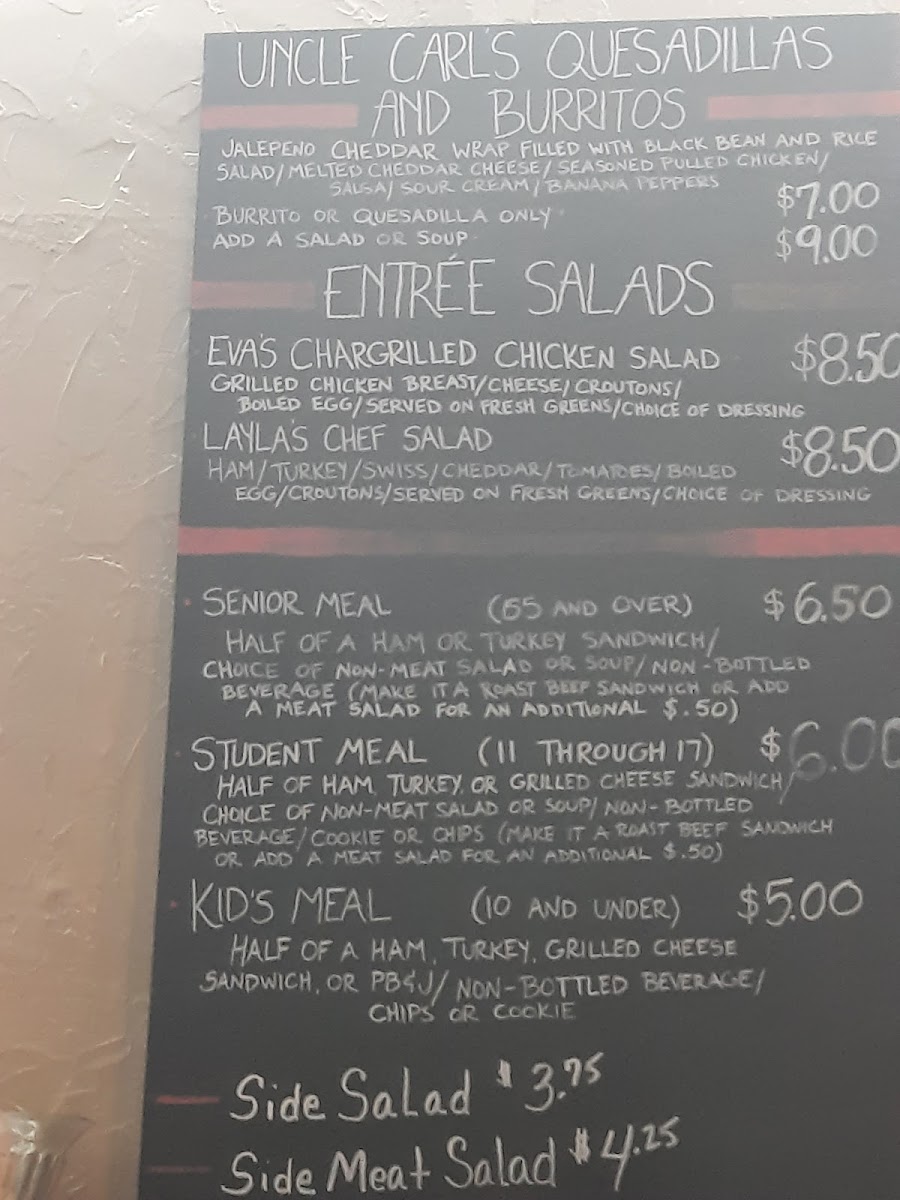 UNCLE CARL'S QUESADILLAS
AND BURRITOS
JALEPENO CHEDDAR WRAP FILLED WITH BLACK BEAN AND RICE
SALAD/MELTED CHEDDAR CHEESE/SEASONED PULLED CHICKEN/
SALSA/SOUR CREAM/BANANA PEPPERS
BURRITO OR QUESADILLA ONLY $7.00
ADD A SALAD OR SOUP $9.00
ENTRÉE SALADS
EVA'S CHARGRILLED CHICKEN SALAD $8.50
GRILLED CHICKEN BREAST/CHEESE/CROUTONS/
BOILED EGG/SERVED ON FRESH GREENS/CHOICE OF DRESSING
LAYLA'S CHEF SALAD $8.50
HAM/TURKEY/SWISS/CHEDDAR/TOMATOES/BOILED
EGG/CROUTONS/SERVED ON FRESH GREENS/CHOICE OF DRESSING
SENIOR MEAL (65 AND OVER) $6.50
HALF OF A HAM OR TURKEY SANDWICH/
CHOICE OF NON-MEAT SALAD OR SOUP/NON-BOTTLED
BEVERAGE (MAKE IT A ROAST BEEF SANDWICH OR ADD
A MEAT SALAD FOR AN ADDITIONAL $.50)
STUDENT MEAL (11 THROUGH 17) $6.00
HALF OF HAM, TURKEY, OR GRILLED CHEESE SANDWICH/
CHOICE OF NON-MEAT SALAD OR SOUP/NON-BOTTLED
BEVERAGE/COOKIE OR CHIPS (MAKE IT A ROAST BEEF SANDWICH
OR ADD A MEAT SALAD FOR AN ADDITIONAL $.50)
KID'S MEAL (10 AND UNDER) $5.00
HALF OF A HAM, TURKEY, GRILLED CHEESE
SANDWICH, OR PB&J/NON-BOTTLED BEVERAGE/
CHIPS OR COOKIE
Side Salad $3.75
Side Meat Salad $4.25